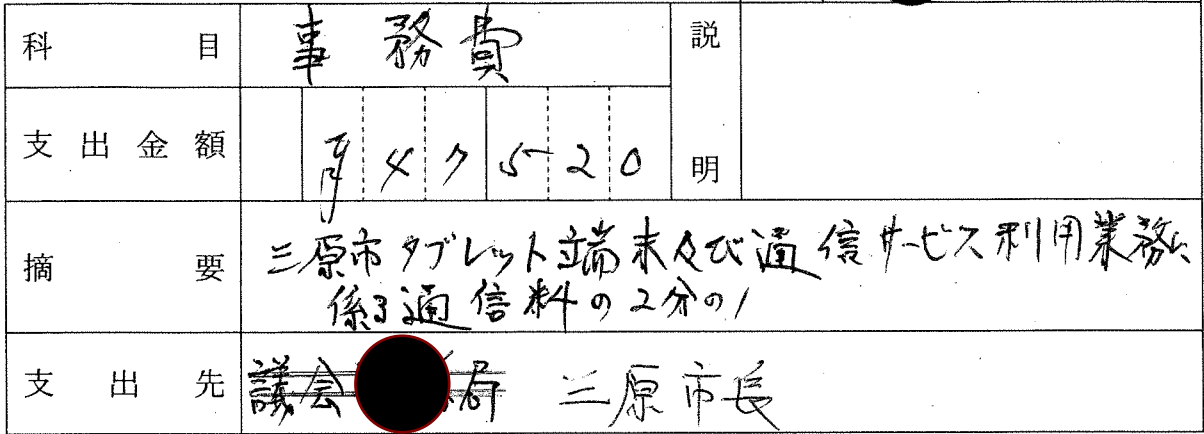 科目 事務費 説明
支出金額 47520
摘要 三原市タブレット端末及び通信サービス利用業務に
係る通信料の2分の1
支出先 議会 局 三原市長